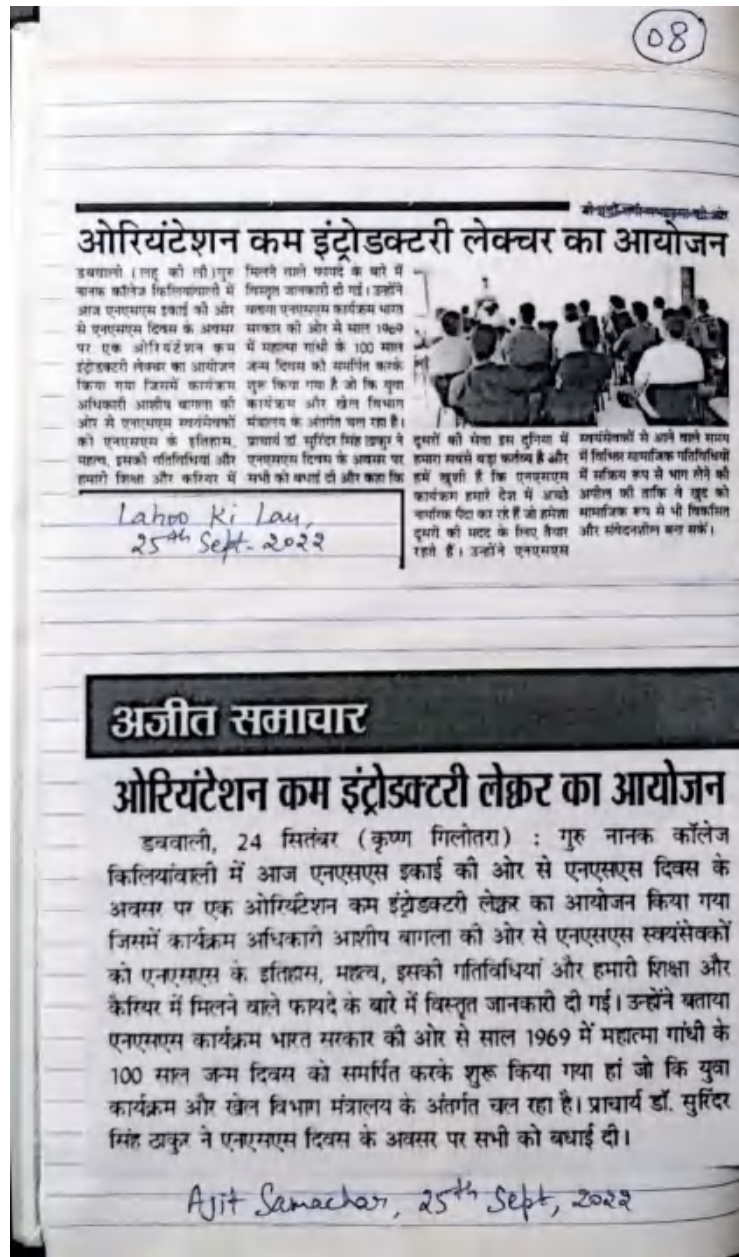 08
ओरियंटेशन कम इंट्रोडक्टरी लेक्चर का आयोजन
डबवाली (लहू की लौ)गुरु
नानक कॉलेज किलियांवाली में
आज एनएसएस इकाई की ओर
से एनएसएस दिवस के अवसर
पर एक ओरियंटेशन कम
इंट्रोडक्टरी लेक्चर का आयोजन
किया गया जिसमें कार्यक्रम
अधिकारी आशीष बागला की
ओर से एनएसएस स्वयंसेवकों
को एनएसएस के इतिहास,
महत्व, इसकी गतिविधियां और
हमारी शिक्षा और करियर में
मिलने वाले फायदे के बारे में
विस्तृत जानकारी दी गई। उन्होंने
बताया एनएसएस कार्यक्रम भारत
सरकार की ओर से साल 1969
में महात्मा गांधी के 100 साल
जन्म दिवस को समर्पित करके
शुरू किया गया है जो कि युवा
कार्यक्रम और खेल विभाग
मंत्रालय के अंतर्गत चल रहा है।
प्राचार्य डॉ. सुरिंदर सिंह ठाकुर ने
एनएसएस दिवस के अवसर पर
सभी को बधाई दी और कहा कि
दूसरों की सेवा इस दुनिया में
हमारा सबसे बड़ा कर्तव्य है और
हमें खुशी है कि एनएसएस
कार्यक्रम हमारे देश में अच्छे
नागरिक पैदा कर रहे हैं जो हमेशा
दूसरों की मदद के लिए तैयार
रहते हैं। उन्होंने एनएसएस
स्वयंसेवकों से आने वाले समय
में विभिन्न सामाजिक गतिविधियों
में सक्रिय रूप से भाग लेने की
अपील की ताकि वे खुद को
सामाजिक रूप से भी विकसित
और संवेदनशील बना सकें।
Lahoo Ki Lau,
25th Sept- 2022
अजीत समाचार
ओरियंटेशन कम इंट्रोडक्टरी लेक्चर का आयोजन
डबवाली, 24 सितंबर (कृष्ण गिलोतरा) : गुरु नानक कॉलेज
किलियांवाली में आज एनएसएस इकाई की ओर से एनएसएस दिवस के
अवसर पर एक ओरियंटेशन कम इंट्रोडक्टरी लेक्चर का आयोजन किया गया
जिसमें कार्यक्रम अधिकारी आशीष बागला की ओर से एनएसएस स्वयंसेवकों
को एनएसएस के इतिहास, महत्व, इसकी गतिविधियां और हमारी शिक्षा और
कैरियर में मिलने वाले फायदे के बारे में विस्तृत जानकारी दी गई। उन्होंने बताया
एनएसएस कार्यक्रम भारत सरकार की ओर से साल 1969 में महात्मा गांधी के
100 साल जन्म दिवस को समर्पित करके शुरू किया गया हां जो कि युवा
कार्यक्रम और खेल विभाग मंत्रालय के अंतर्गत चल रहा है। प्राचार्य डॉ. सुरिंदर
सिंह ठाकुर ने एनएसएस दिवस के अवसर पर सभी को बधाई दी।
Ajit Samachar, 25th Sept, 2022